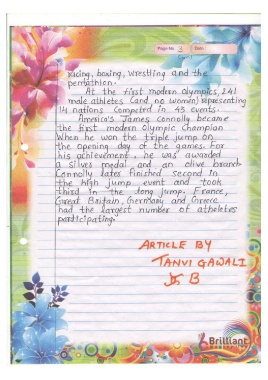 Page No. Date
racing, boxing, wrestling and the
pentathlon.
At the first modern Olympics, 241
male athletes (and no women) representing
14 nations Competed in 43 events.
America's James Connolly became
the first modern Olympic Champion
When he won the triple jump on
the opening day of the games. For
his achievement, he was awarded
a silver medal and an olive branch
Connolly later finished second in
the high jump event and took
third in the long jump. France,
Great Britain, Germany and Greece
had the largest number of atheletes
participating.
ARTICLE BY
TANVI GAWALI
B
Brilliant